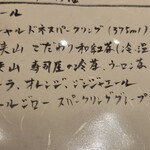 ール
シャルドネスパークリング(375ml)
狭山 こだわり和紅茶(冷・温
狭山 寿司屋の冷茶、ウーロン茶
ーラ、オレンジ、ジンジャエール
ールゼロー スパークリンググレープ